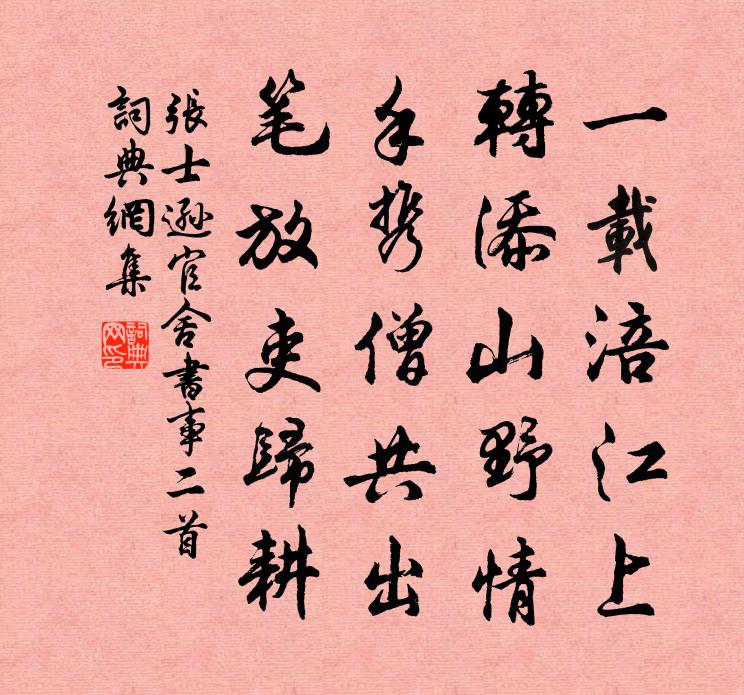 一載涪江上
轉添山野情
手携僧共出
笔放吏歸耕
張士遜官舍書事二首
詞典網集
詞典網印